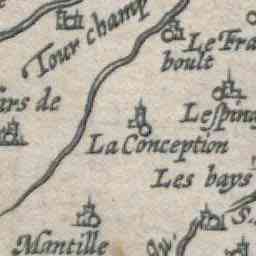 Tour champ
Le Fra
boult
urs de
Lespin
La Conception
Les bays
S.
Mantille